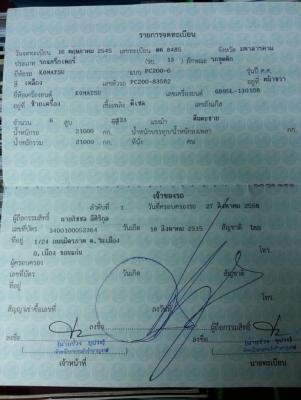 รายการจดทะเบียน
วันจดทะเบียน 16 พฤษภาคม 2545 เลขทะเบียน ตค 8485 จังหวัด มหาสารคาม
ประเภท รถแทร็กเตอร์ (รย. 13 ) ลักษณะ รถขุดตัก
ยี่ห้อรถ KOMATSU แบบ PC200-6 รุ่นปี ค.ศ.
สี เหลือง เลขตัวรถ PC200-83582 อยู่ที่
ยี่ห้อเครื่องยนต์ KOMATSU เลขเครื่องยนต์
อยู่ที่ ซ้ายเครื่อง เชื้อเพลิง ดีเซล เลขถังแก๊ส
จำนวน 6 สูบ แรงม้า
น้ำหนักรถ 21000 กก. น้ำหนักบรรทุก/น้ำหนักลงเพลา กก.
น้ำหนักรวม 21000 กก. ที่นั่ง คน
เจ้าของรถ
ลำดับที่ 1 วันที่ครอบครองรถ 27 สิงหาคม
ผู้ถือกรรมสิทธิ์
เลขที่บัตร วันเกิด 10 สิงหาคม 2515 สัญชาติ ไทย
ที่อยู่ 1/24 ต.ในเมือง
อ.เมือง ขอนแก่น โทร.
ผู้ครอบครอง
เลขที่บัตร วันเกิด สัญชาติ
ที่อยู่ โทร.
สัญญาเช่าซื้อเลขที่ ลงวันที่
ลงชื่อ ผู้ถือกรรมสิทธิ์
ลงชื่อ ลงชื่อ
เจ้าหน้าที่ นายทะเบียน